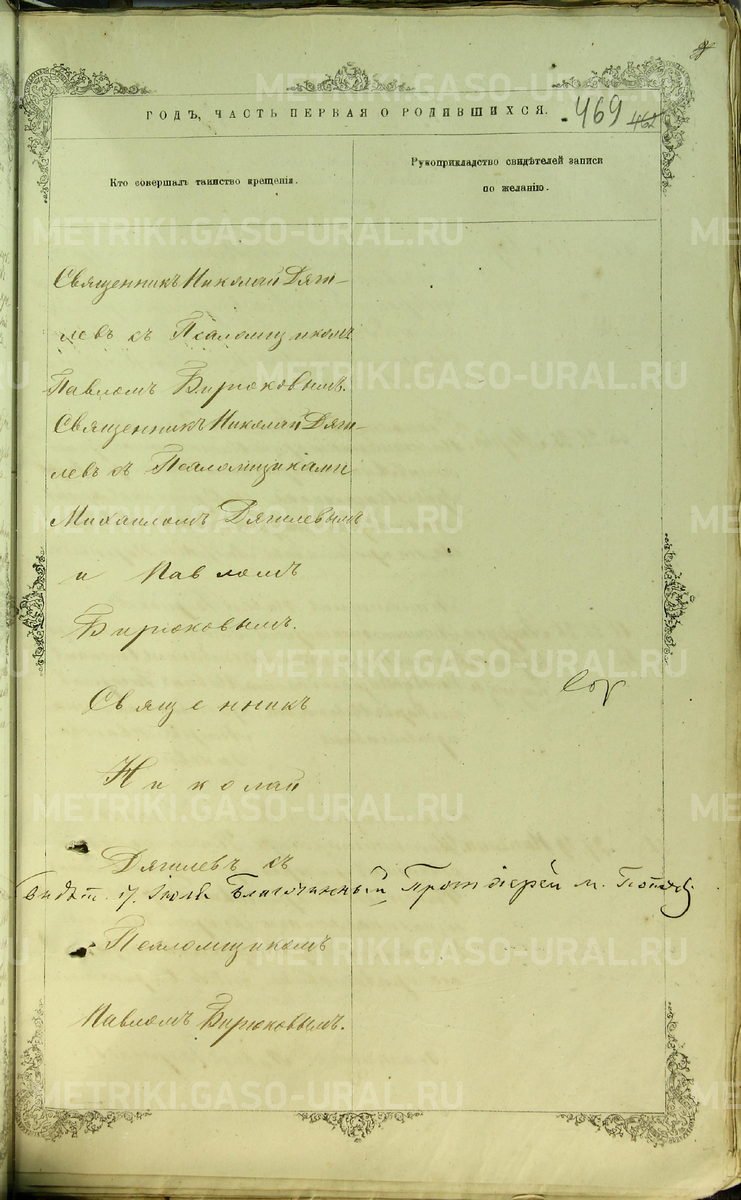 ГОДЪ, ЧАСТЬ ПЕРВАЯ О РОДИВШИХСЯ.
469
Кто совершалъ таинство крещенія.
Рукоприкладство свидѣтелей записи
по желанію.
Священникъ Николай Дяги-
левъ съ Псаломщикомъ
Павломъ Бирюковымъ.
Священникъ Николай Дяги-
левъ съ Псаломщиками
Михаиломъ Дягилевымъ
и Павломъ
Бирюковымъ.
Священникъ
Николай
Дягилевъ съ
Благочинный Протоіерей
Псаломщикомъ
Павломъ Бирюковымъ.
METRIKI.GASO-URAL.RU